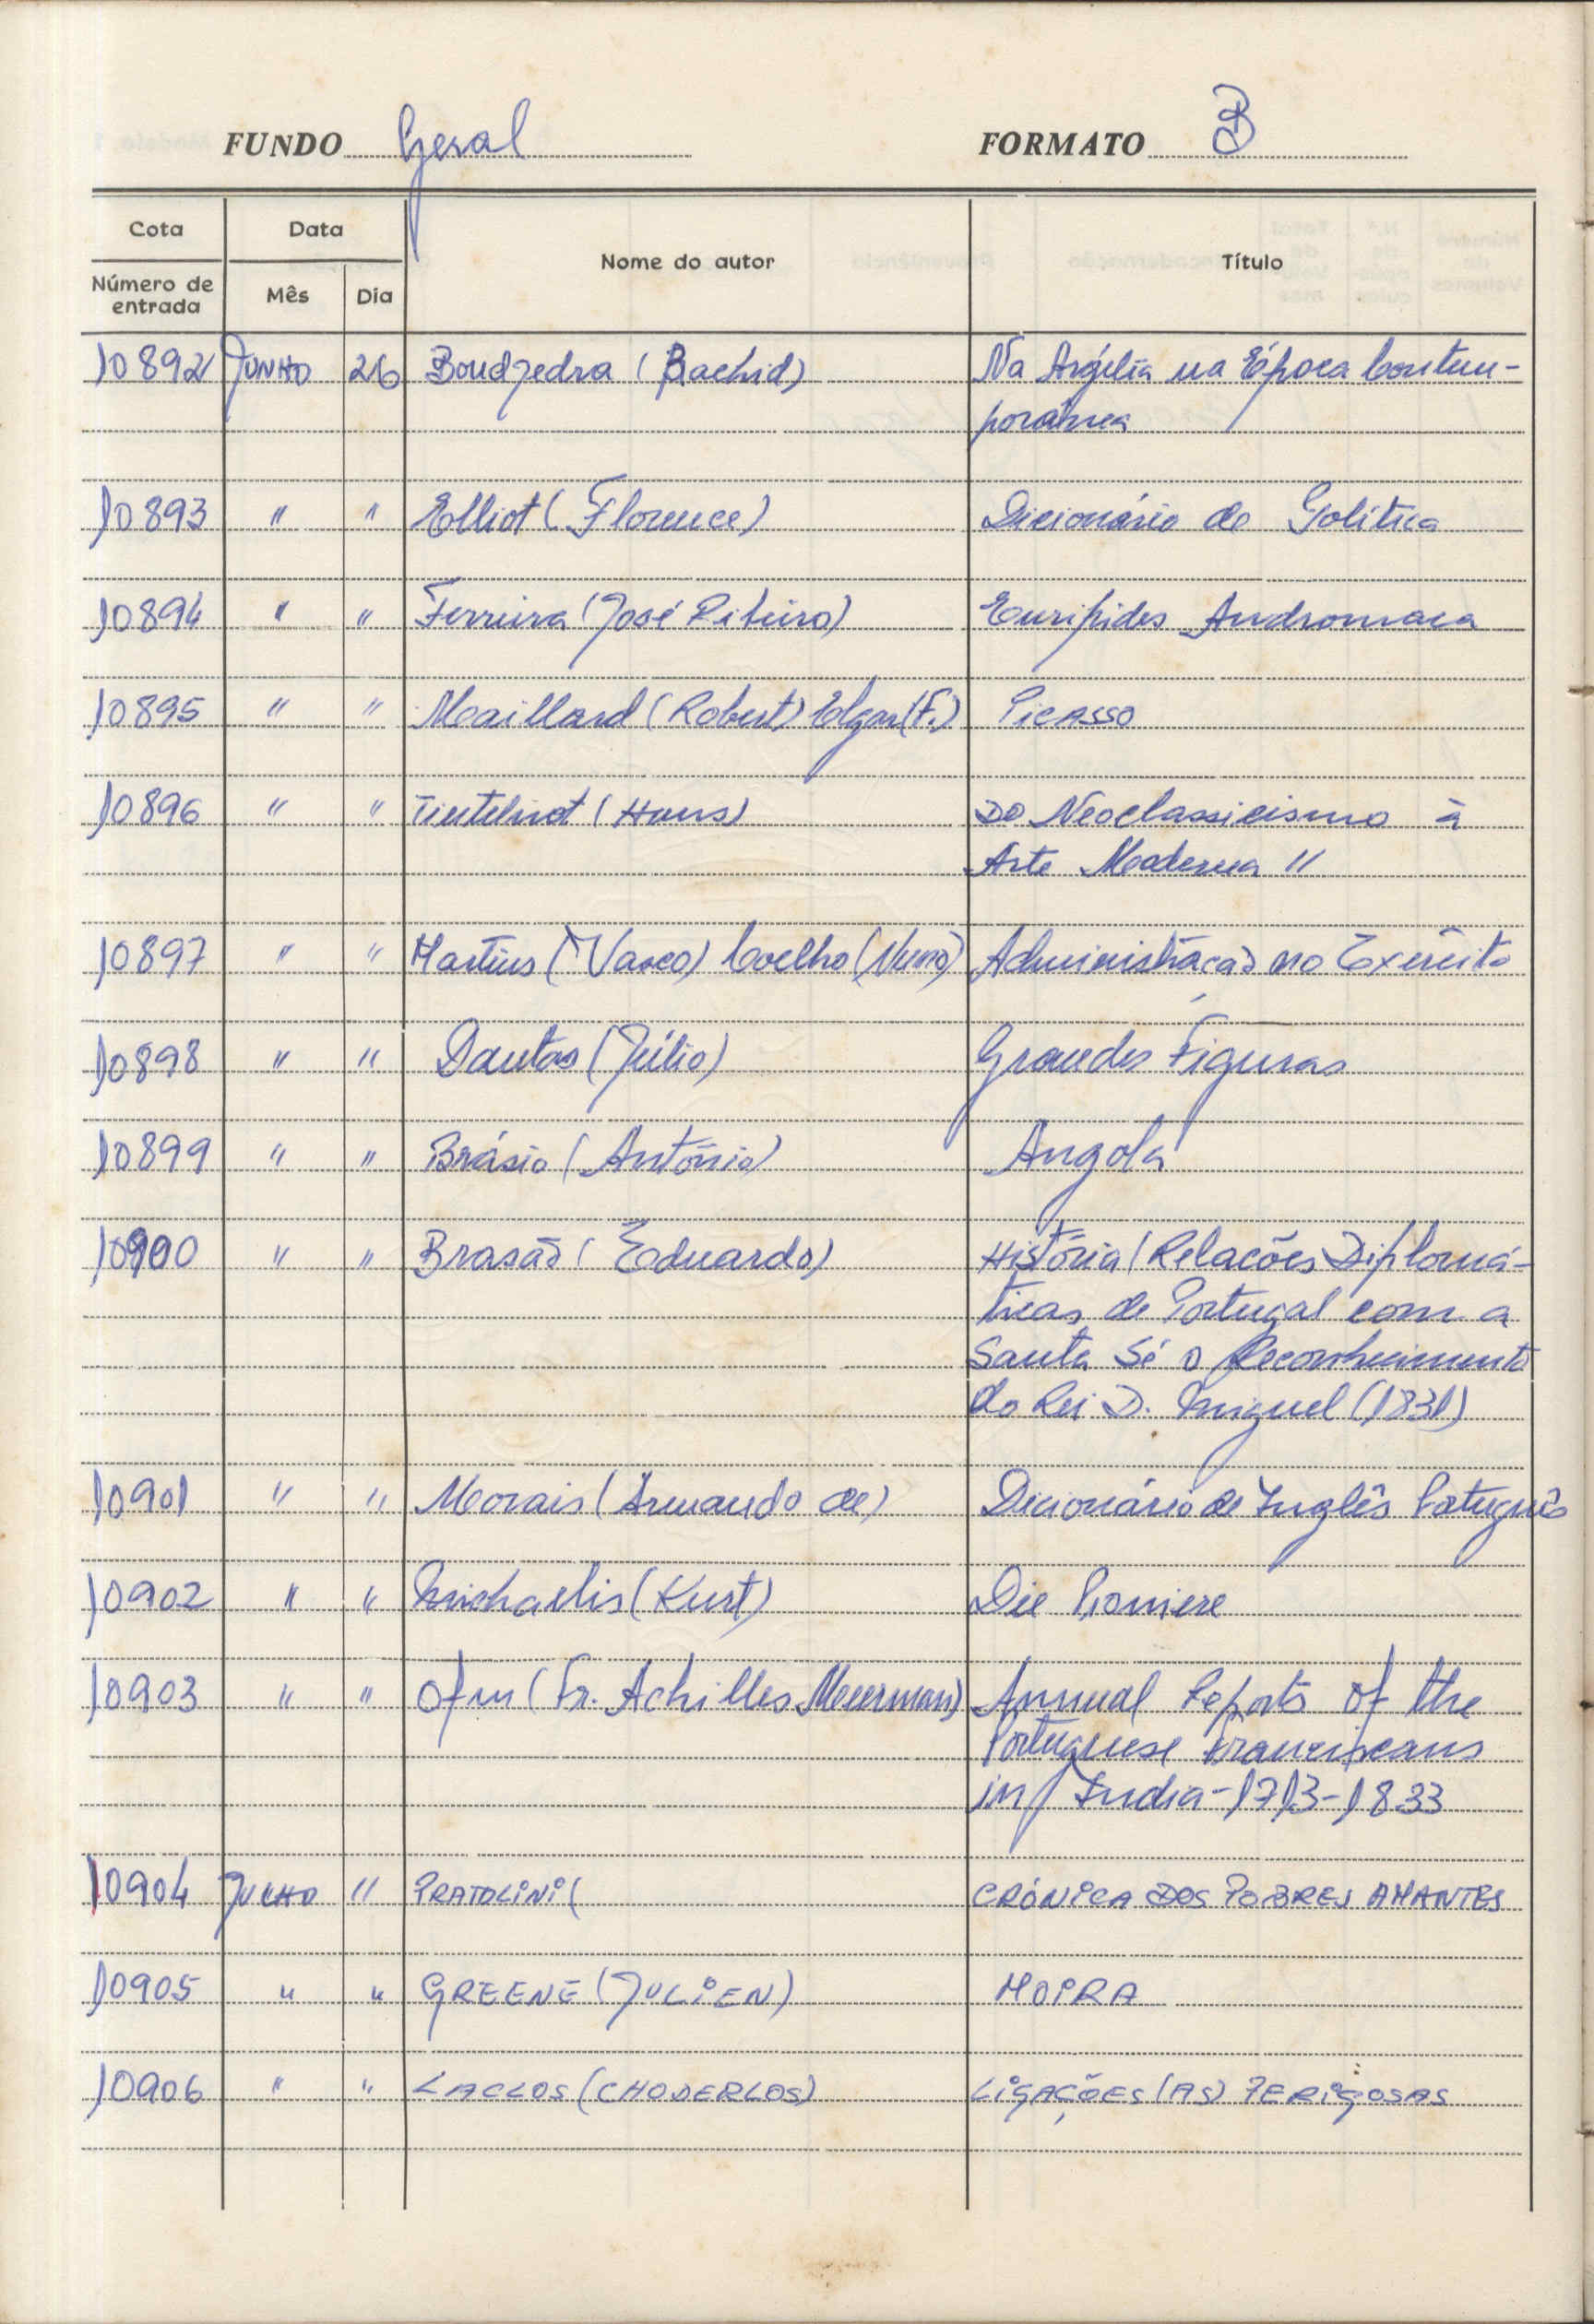 FUNDO Geral FORMATO B
Cota Data Nome do autor Título
Número de entrada Mês Dia
10892 JUNHO 26 Boudjedra (Rachid) Na Argélia na Época Contem-
porânea
10893 " " Elliot (Florence) Dicionário de Política
10894 " " Ferreira (José Ribeiro) Eurípides Andromaca
10895 " " Maillard (Robert) Elgar (F.) Picasso
10896 " " (Hans) Do Neoclassicismo à
Arte Moderna "
10897 " " Martins (Vasco) Coelho (Nuno) Administração no Exército
10898 " " Dantas (Júlio) Grandes Figuras
10899 " " Brásio (António) Angola
10900 " " Brasão (Eduardo) História (Relacões Diplomá-
ticas de Portugal com a
Santa Sé o Reconhecimento
do Rei D. Miguel (1831)
10901 " " Morais (Armando de) Dicionário de Inglês Português
10902 " " Michaelis (Kurt) Die Pioniere
10903 " " Ofm (Fr. Achilles Meersman) Annual Reports of the
Portuguese Franciscans
in India-1713-1833
10904 JULHO " PRATOLINI ( CRÓNICA DOS POBRES AMANTES
10905 " " GREENE (JULIEN) MOIRA
10906 " " LACLOS (CHODERLOS) LIGAÇÕES (AS) PERIGOSAS